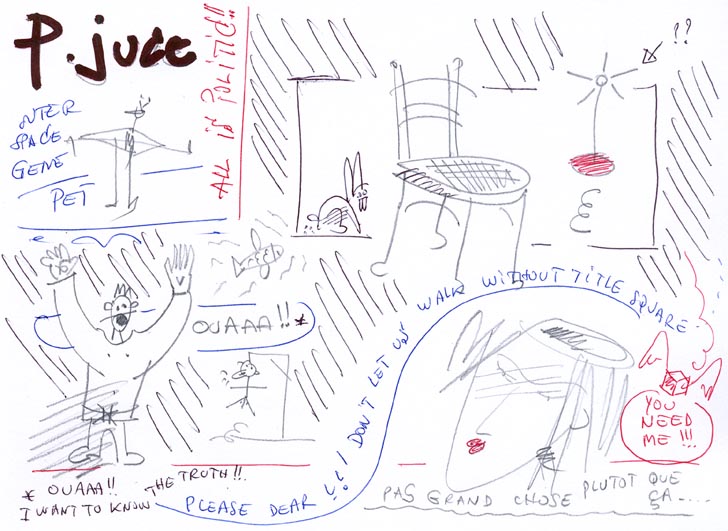 P. juce
ALL is POLITIC!!
??
INTER
SPACE
GENE
PET
OUAAA!!*
PLEASE DEAR !! I DON'T LET US WALK WITHOUT TITLE SQUARE
YOU
NEED
ME !!!
* OUAAA!!
I WANT TO KNOW THE TRUTH!!
PAS GRAND CHOSE PLUTOT QUE
ÇA-....